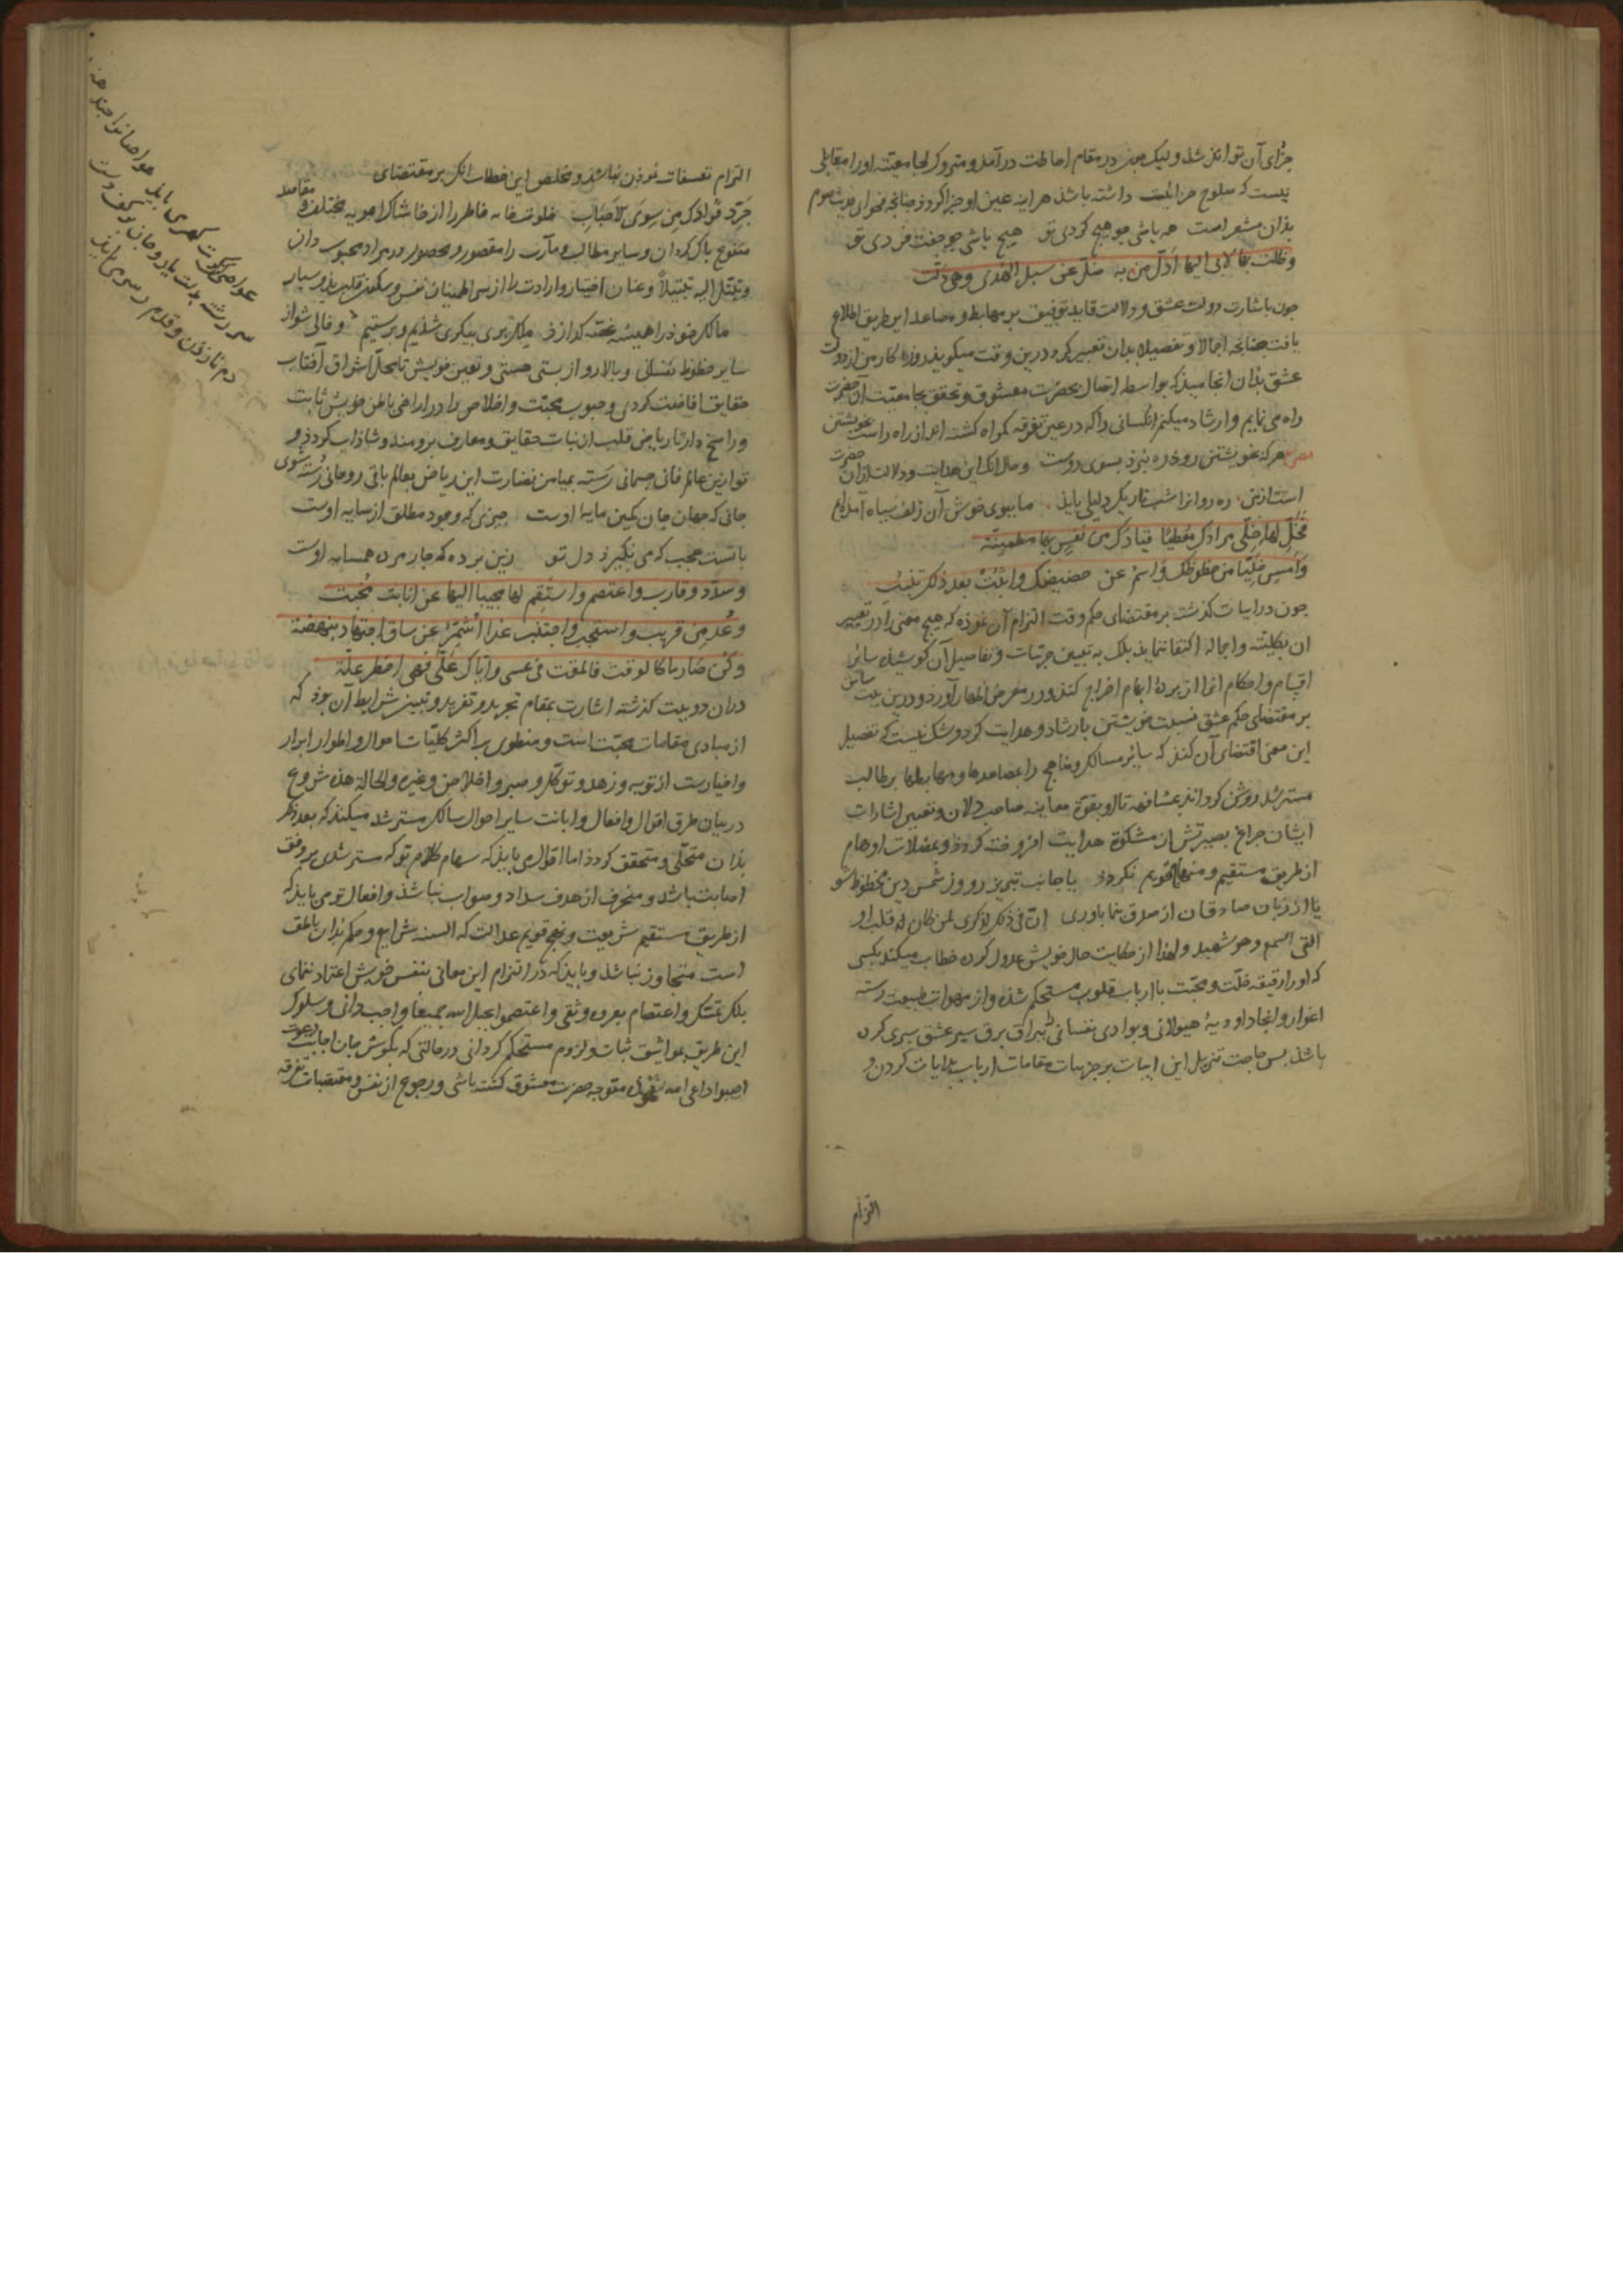 جزای آن تواند شد و لیک چون در مقام احاطت درآمد و متروک لجا معیته او را مقابلی
نیست که صلوح جزائیت داشته باشد هر اینه عین او جزا کردد چنانچه فحوای
بدان مشعر است هر باشی چو هیچ کردی تو هیچ باشی چو جفت فردی تو
وظلت بها لابی الیها ادل من به ضل عن سبل الهدی وهی دلت
چون باشارت دولت عشق و ولایت قاید توفیق بر مهابط و مصاعد این طریق اطلاع
یافت چنانچه اجمالا و تفصیلا بدان تعبیر کرد درین وقت میکوید روزه کار من از دولت
عشق بدان انجامید که بواسطه اتصال بحضرت معشوق و تحقق بجا معیت آن حضرت
راه می نمایم و ارشاد میکنم انکسانی را که در عین تفرقه کمراه کشته اند از راه راست بخویشتن
هر که بخویشتن رود ره نبرد بسوی دوست و حال انک این هدایت و دلالت از آن حضرت
است ازین ره روانرا شب تاریک دلیلی باید ما ببوی خوش آن زلف سیاه آمده‌ایم
فخل لها خلی مرادک معطیا قیادک من نفس بها مطمئنة
وامس خلیا من حظوظک واسم عن حضیضک واثبت بعد ذلک تنبت
چون در ابیات گذشته بر مقتضای حکم وقت التزام آن نموده که هیچ معنی را در تعبیر
ان بکلیته و اجماله اکتفا ننماید بلک به تبیین جزئیات و تفاصیل آن کوشیده سایر
اقسام و احکام انرا از پردۀ ابهام اخراج کند و در معرض اظهار آورد و درین بیت سابق
بر مقتضای حکم عشق نسبت خویشتن بارشاد و هدایت کرد و شک نیست که تفصیل
این معنی اقتضای آن کند که سایر مسالک و مناهج را بمصاعدها و مهابطها بر طالب
مسترشد روشن کرداند بمشافهة تا او بقوة معاینه صاحب دلان و تعیین اشارات
ایشان چراغ بصیرتش از مشکوة هدایت افروخته کردد و بمضلات اوهام
از طریق مستقیم و منهاج قویم نکردد یا جانب تبریز رو وز شمس دین محظوظ شو
یا از زبان صادقان از صدق نما باوری ان فی ذلک لذکری لمن کان له قلب او
القی السمع وهو شهید و لهذا از حکایت حال خویش عدول کرده خطاب میکند بکسی
که او را رقیقه خلّت و محبّت با ارباب قلوب مستحکم شده و از مهوات طبیعت رسته
اغوار و انجاد اودیۀ هیولانی و بوادی نفسانی ببراق برق سیر عشق سپری کرده
باشد پس حاجت تنزیل این ابیات بر جزئیات مقامات ارباب بدایات کردن و
التزام
التزام تعسفات نمودن نباشد و مخلص این خطاب انک بر مقتضای
جَرّد فؤادک مِن سِوَی الاَحباب خلوتخانه خاطر را از خاشاک اهویه مختلفه و مقاصد
متنوع پاک کردان و سایر مطالب و مآرب را مقصور و محصور در مراد محبوب دان
وتبتّل الیه تبتیلاً و عنان اختیار و ارادت را از سر اطمینان نفس و سکون قلب بدو سپار
ما ملک خود را همیشه غصه کدازد ملک پری پیکری شدیم و برستیم و خالی شو از
سایر حظوظ نفسانی و بالا رو از پستی هستی و تعین خویش تا محل اشراق آفتاب
حقایق افاضت کردی و حبوب محبّت و اخلاص را در اراضی باطن خویش ثابت
و راسخ دار تا ریاض قلب از نبات حقایق و معارف برومند و شاداب کردد و
تو ازین عالم فانی جسمانی رسته بمیامن نضارت این ریاض بعالم باقی روحانی رُسته شوی
جانی که جهان جان کمین مایه اوست چیزی که وجود مطلق از سایه اوست
با تست عجب که می نگیرد دل تو زین پرده که جار مرده همسایه اوست
وسدّد وقارب واعتصم واستقم لها مجیبا الیها عن انابت مُخبت
وعُد مِن قریب واستجب واجتنب غدا اُشمّر عن ساق اجتهاد بنهضة
وکن صارما کالوقت فالمقت فی عسی وایّاک علّی فهی اخطر علّة
دران دو بیت گذشته اشارت بمقام تجرید و تفرید و تبیین شرایط آن بود که
از مبادی مقامات محبّت است و منطوی بر اکثر کلیّات احوال و اطوار ابرار
و اخیارست از توبه و زهد و توکّل و صبر و اخلاص و غیره والحالة هذه شروع
در بیان طرق اقوال و افعال و ابانت سایر احوال سالک مسترشد میکند که بعد ذلک
بدان متحلّی و متحقق کردد اما اقوال می باید که سهام کلام تو که مسترشدی بر وفق
اصابت باشد و منحرف از هدف سداد و صواب نباشد و افعال تو می باید که
از طریق مستقیم شریعت و نهج قویم عدالت که السنه شرایع و حکم بدان ناطق
است متجاوز نباشد و باید که در التزام این معانی بنفس خویش اعتماد ننمای
بلک تمسّک و اعتصام بعروه وثقی و اعتصموا بحبل الله جمیعاً واجب دانی و سلوک
این طریق بمواثیق ثبات و لزوم مستحکم کردانی در حالتی که بکوش جان اجابت دعوت
اجیبوا داعی الله متوجه حضرت معشوق کشته باشی و رجوع از نفس و مقتضیات تفرقه
غواصی کن گرت گهر می باید غواصانرا چهار
سر رشته بدست یار و جان بر کف دست
دم نازدن و قدم ز سر می باید